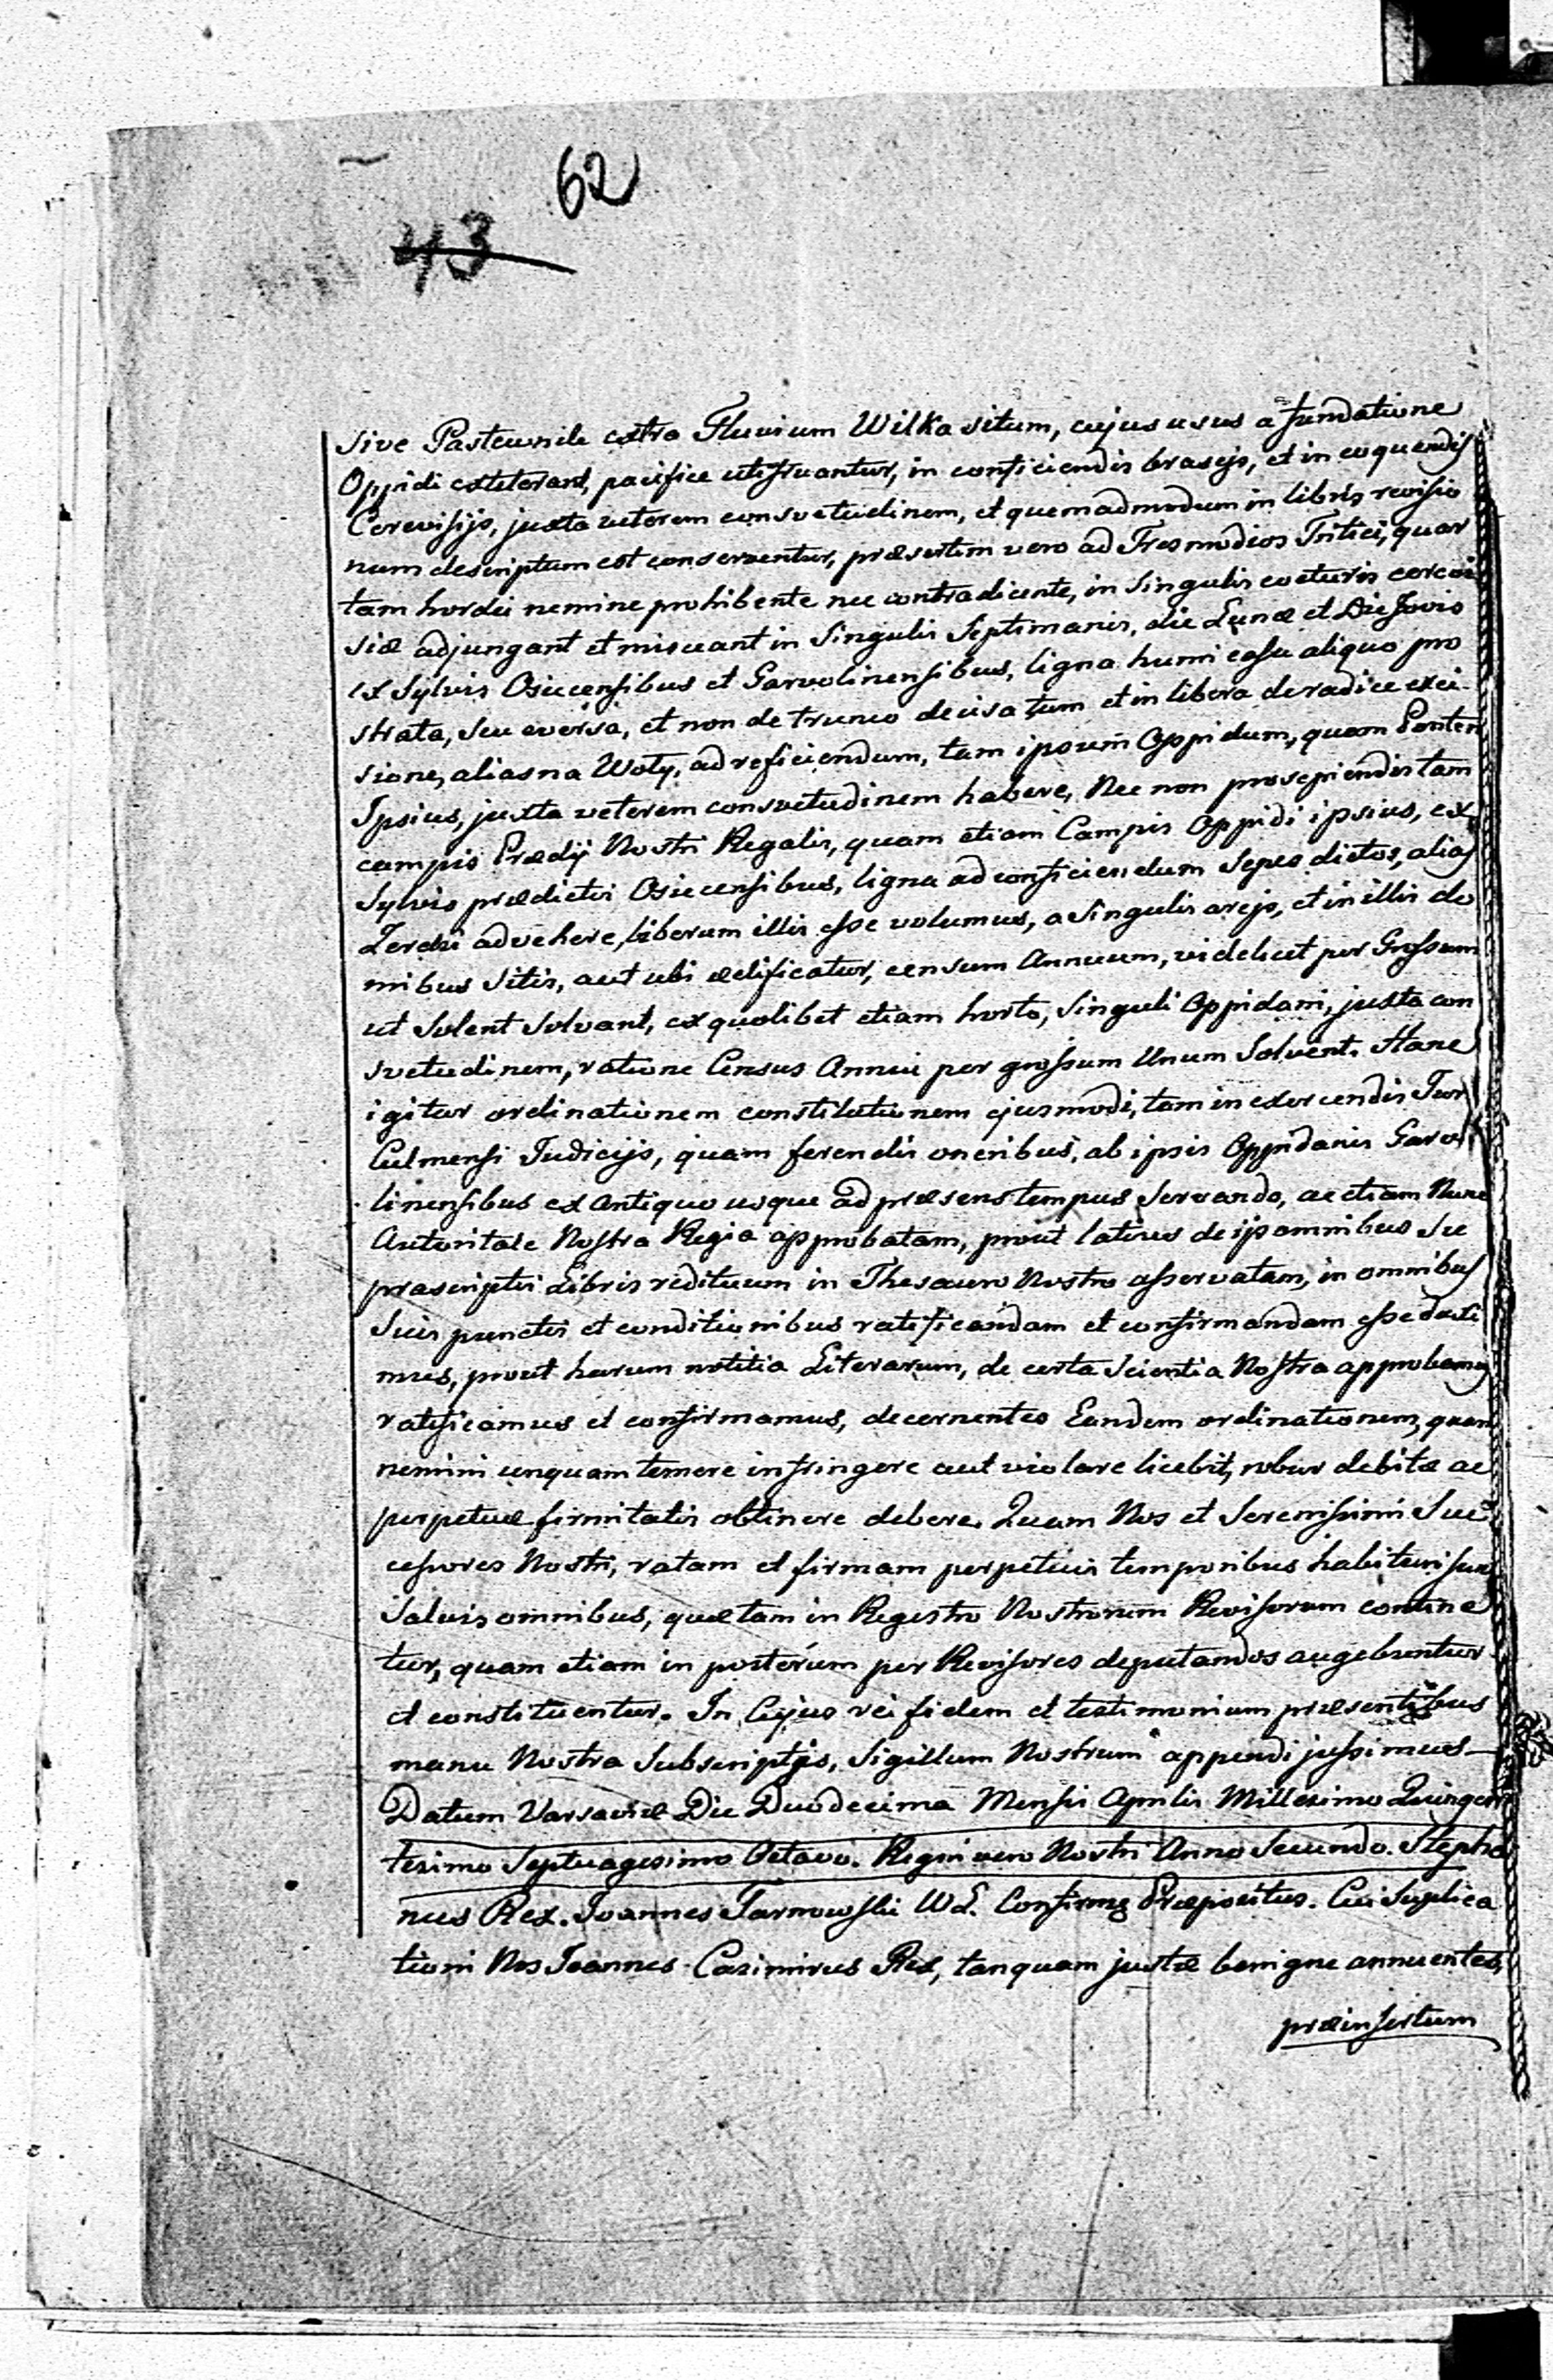 62
43
sive Pascuonile extra Fluvium Wilka situm, cujus usus a fundatione
Oppidi extiterant, pacifice utifruantur, in conficiendis brasejs, et in coquendis
Cerevisijs, juxta veterem consvetudinem, et quemadmodum in libris revisio
num descriptum est conserventur, præsertim vero ad Tres modios Tritici, quar
tam hordei nemine prohibente nec contradicente, in Singulis cocturis cerevi
siæ adjungant et misceant in Singulis Septimanis, die Lunæ et Die Jovis
ex Sylvis Osiecensibus et Garvolinensibus, ligna humi casu aliquo pro
strata, seu eversa, et non de trunco decisa tum et in libera de radice exci
sione, alias na Woły, ad reficiendum, tam ipsum Oppidum, quam Pontem
Ipsius, juxta veterem consvetudinem habere, Nec non prosepiendis tam
campis Prædij Nostri Regalis, quam etiam Campis Oppidi ipsius, ex
Sylvis prædictis Osiecensibus, ligna ad conficiendum Sepes dictos, alias
Zerdzi advehere, liberum illis esse volumus, a Singulis arejs, et in illis do
mibus Sitis, aut ubi ædificatur, censum Annuum, videlicet per Grossum
ut Solent Solvant, ex quolibet etiam horto, Singuli Oppidani, juxta con
svetudinem, ratione Census Annui per grossum Unum Solvent. Hanc
igitur ordinationem constitutionem ejusmodi, tam in exercendis Jur
Culmensi Judicijs, quam ferendis oneribus, ab ipsis Oppidanis Garvo
linensibus ex Antiquo usque ad præsens tempus Servando, ac etiam Nunc
Autoritate Nostra Regia approbatam, prout latius de ijs omnibus Su
prascriptis Libris redituum in Thesauro Nostro asservatam, in omnibus
Suis punctis et conditionibus ratificandam et confirmandam esse duxi
mus, prout harum notitia Literarum, de certa Scientia Nostra approbamus
ratificamus et confirmamus, decernentes Eandem ordinationem, quam
nemini unquam temere infringere aut violare licebit, robur debitæ ac
perpetuæ firmitatis obtinere debere. Quam Nos et Serenissimi Suc
cessores Nostri, ratam et firmam perpetuis temporibus habituri sumus
Salvis omnibus, quæ tam in Regestro Nostrorum Revisorum contine
tur, quam etiam in posterum per Revisores deputandos augebuntur
et constituentur. In Cujus rei fidem et testimonium præsentibus
manu Nostra Subscriptis, Sigillum Nostrum appendi jussimus
Datum Varsaviæ Die Duodecima Mensis Aprilis Millesimo Quingen
tesimo Septuagesimo Octavo. Regni vero Nostri Anno Secundo. Stepha
nus Rex. Joannes Tarnowski Wł. Præpositus. Cui Suplica
tioni Nos Joannes Casimirus Rex, tanquam justæ benigne annuentes,
præinsertum